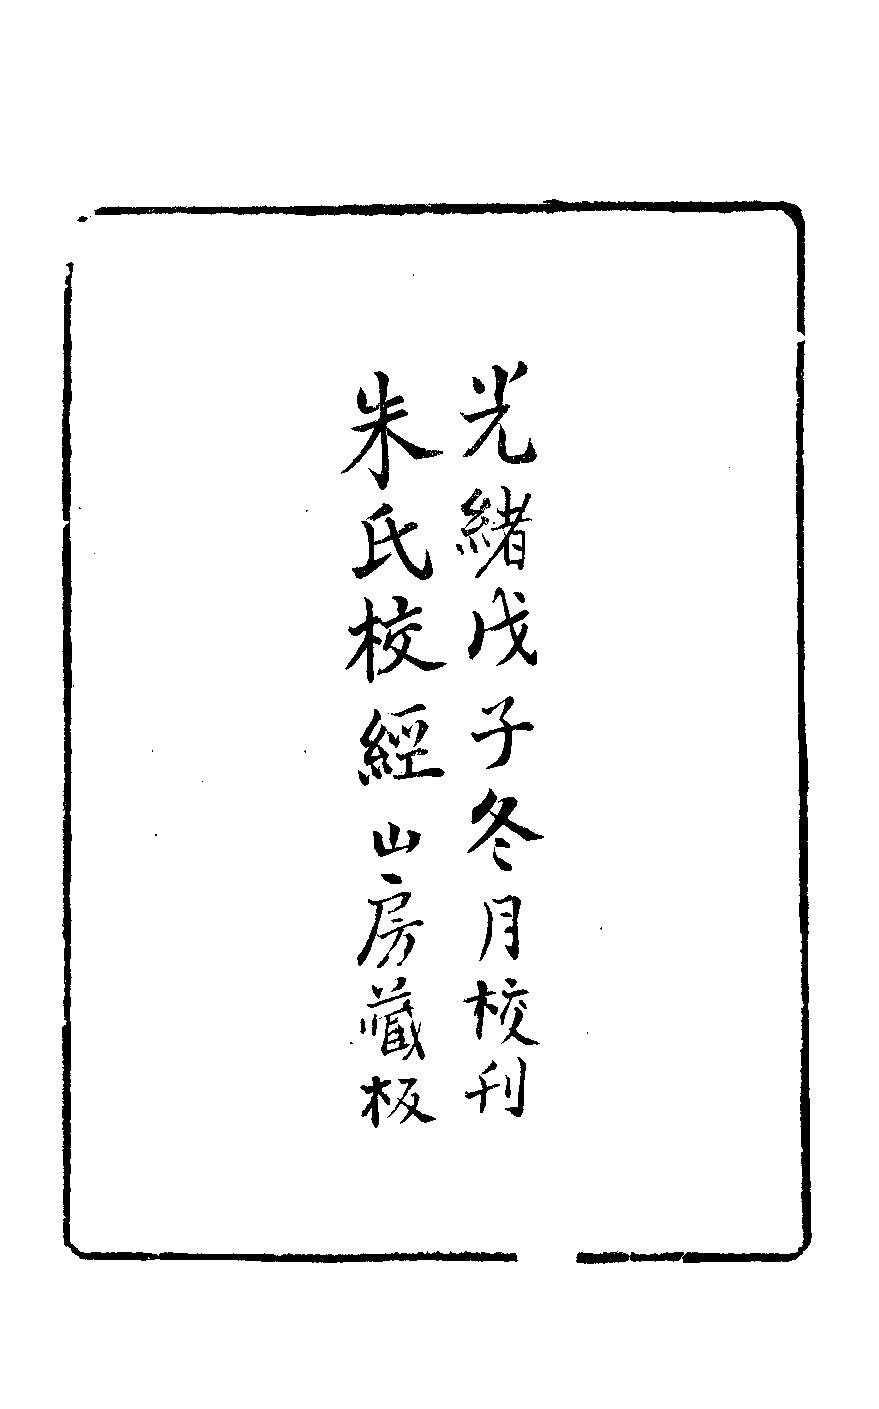 光緒戊子冬月校刊
朱氏校經山房藏板